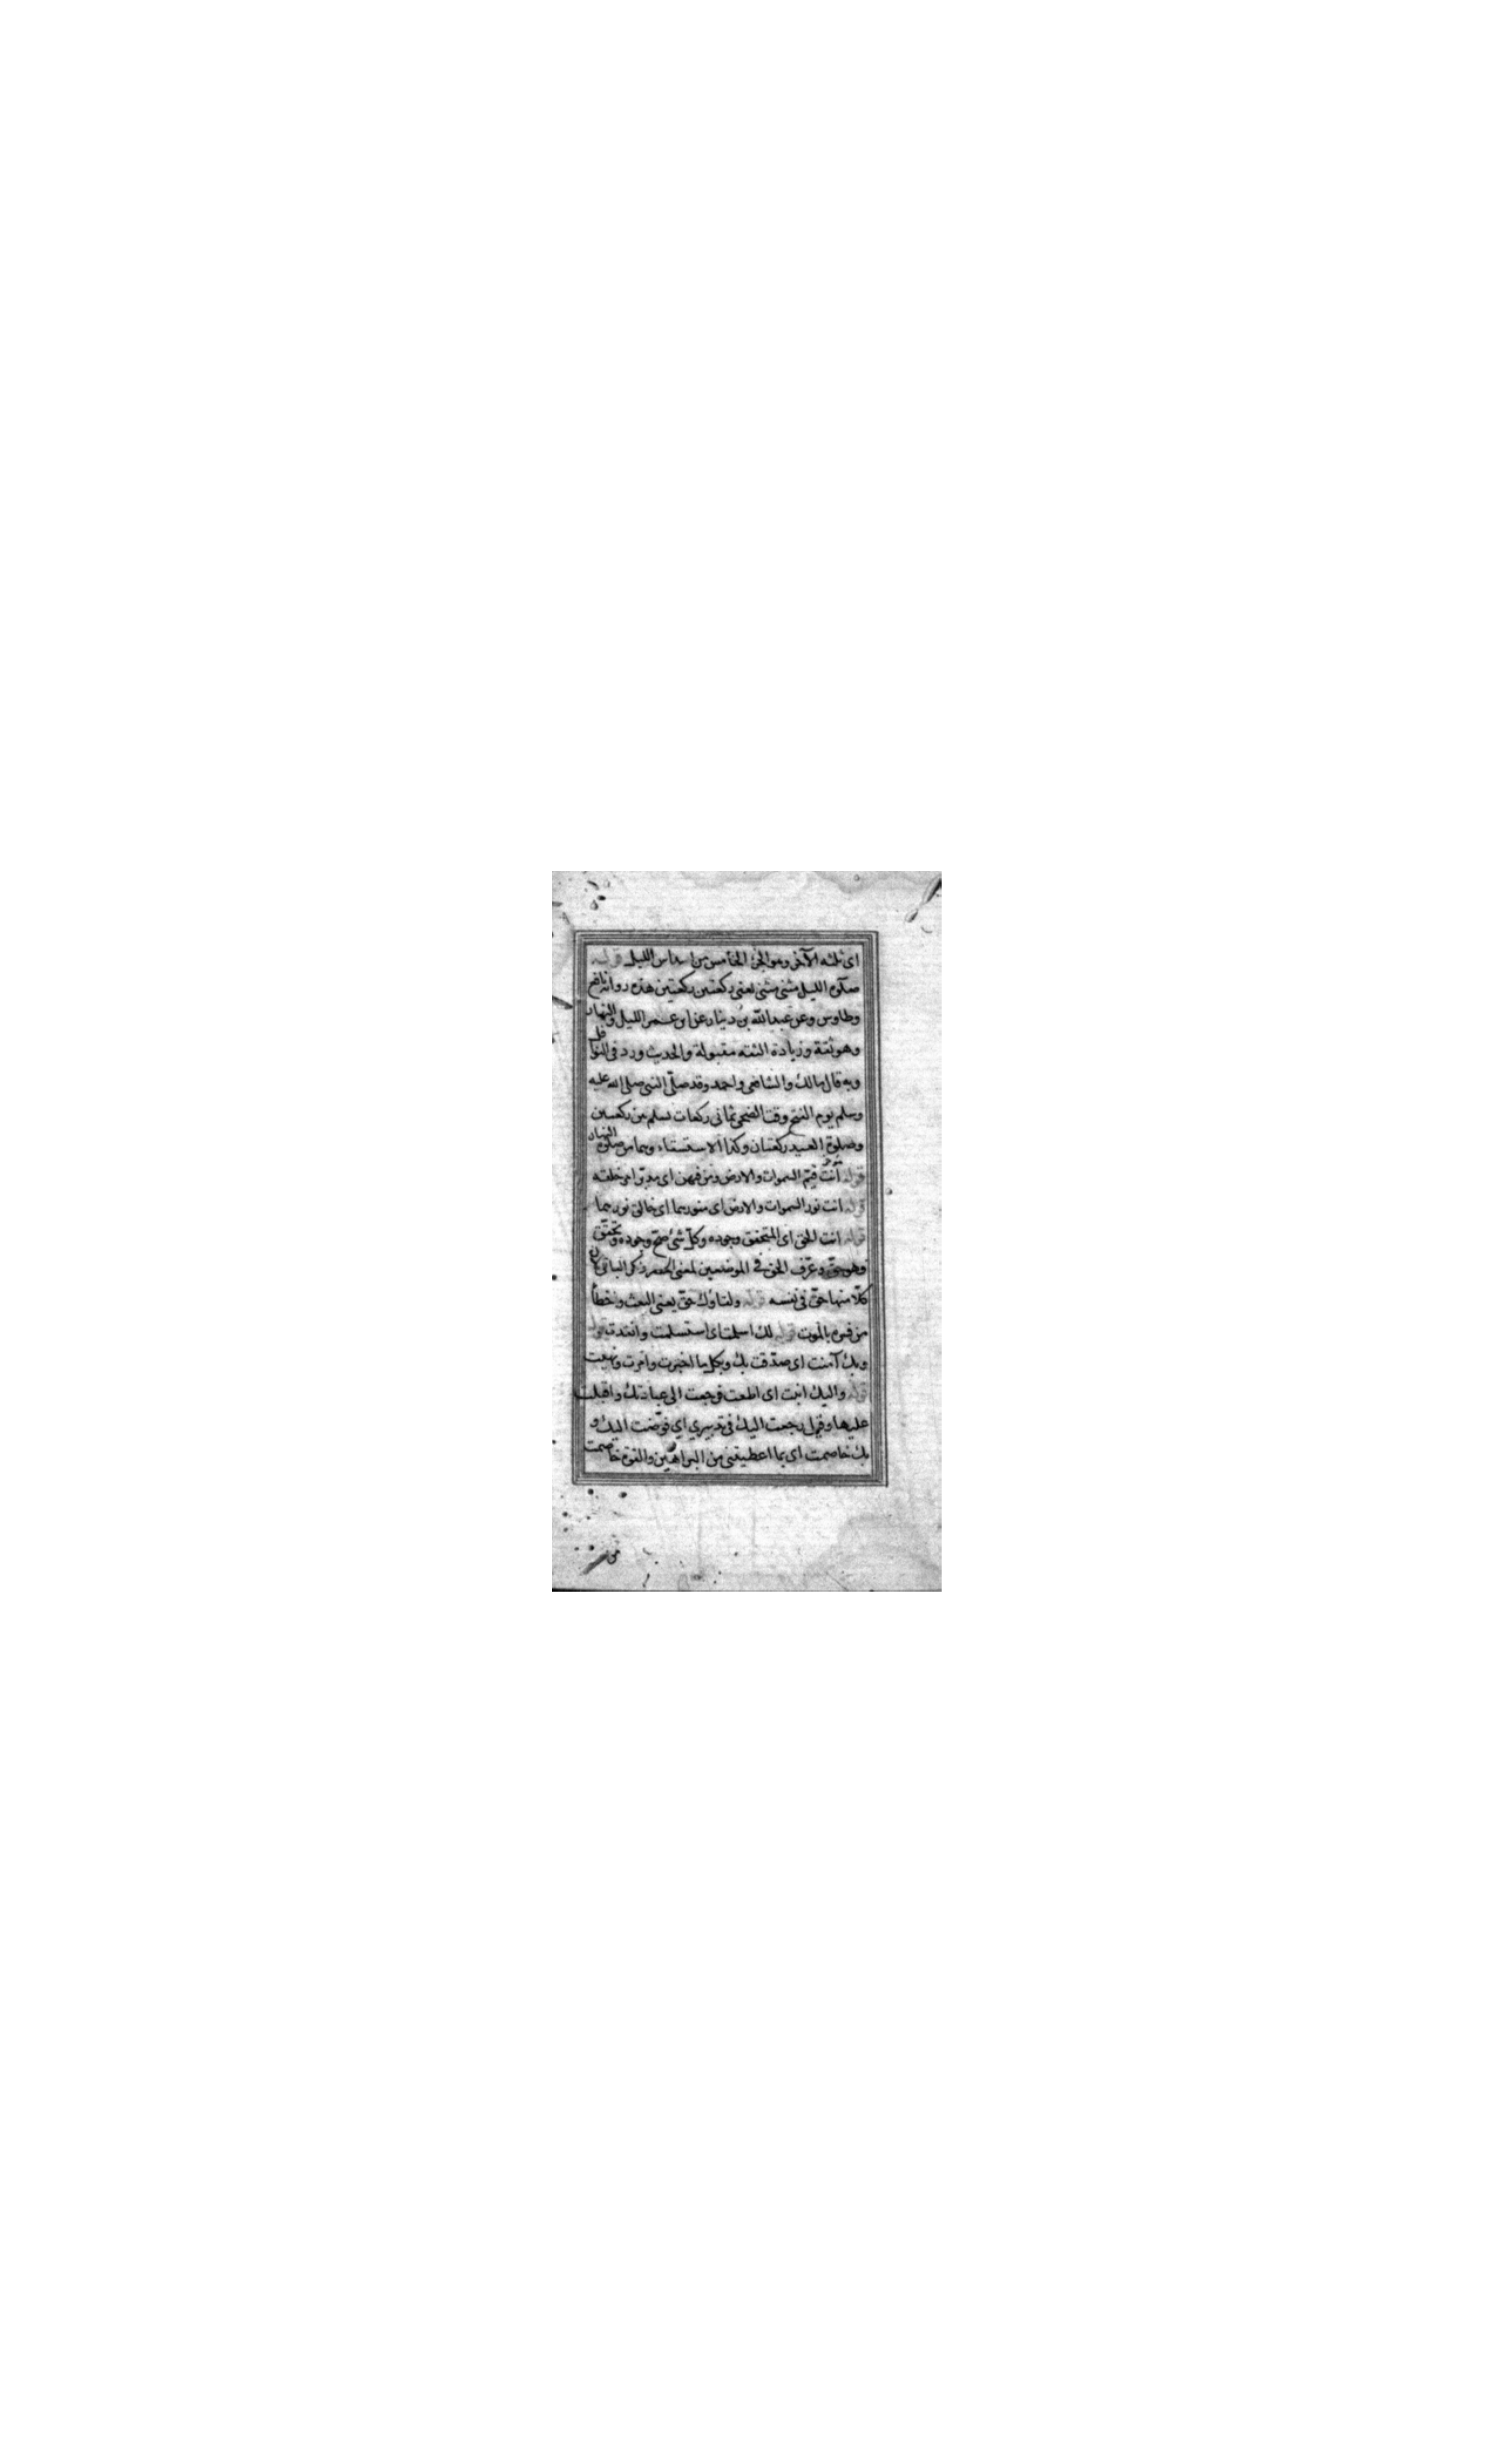 اى ثلثه الآخر وهو الجزء الخامس من اسداس الليل قوله
صلوة الليل مثنى مثنى يعنى ركعتين ركعتين هذه رواية نافع
وطاوس وعن عبد الله بن دينار عن ابن عمر الليل والنهار
وهو ثقة وزيادة الثقة مقبولة والحديث ورد فى النوافل
وبه قال مالك والشافعى واحمد وقد صلّى النبى صلى الله عليه
وسلم يوم الفتح وقت الضحى ثمانى ركعات يسلم من ركعتين
وصلوة العيد ركعتان وكذا الاستسقاء وهما من صلوة النهار
قوله انت قيّم السموات والارض ومن فيهن اى مدبّر امر خلقه
قوله انت نور السموات والارض اى منورهما اى خالق نورهما
قوله انت الحق اى المتحقق وجوده وكلّ شئ صحّ وجوده وتحقّق
فهو حقّ وعرّف الحق فى الموضعين لمعنى الحصر ونكر البواقى لان
كلّا منها حقّ فى نفسه قوله ولقاؤك حقّ يعنى البعث واخطأ
من فسره بالموت قوله لك اسلمت اى استسلمت وانقدت قوله
وبك آمنت اى صدّقت بك وبكل ما اخبرت وامرت ونهيت
قوله واليك انبت اى اطعت فرجعت الى عبادتك واقبلت
عليها وقيل رجعت اليك فى تدبيرى اى فوّضت اليك و
بك خاصمت اى بما اعطيتنى من البراهين والقوة خاصمت